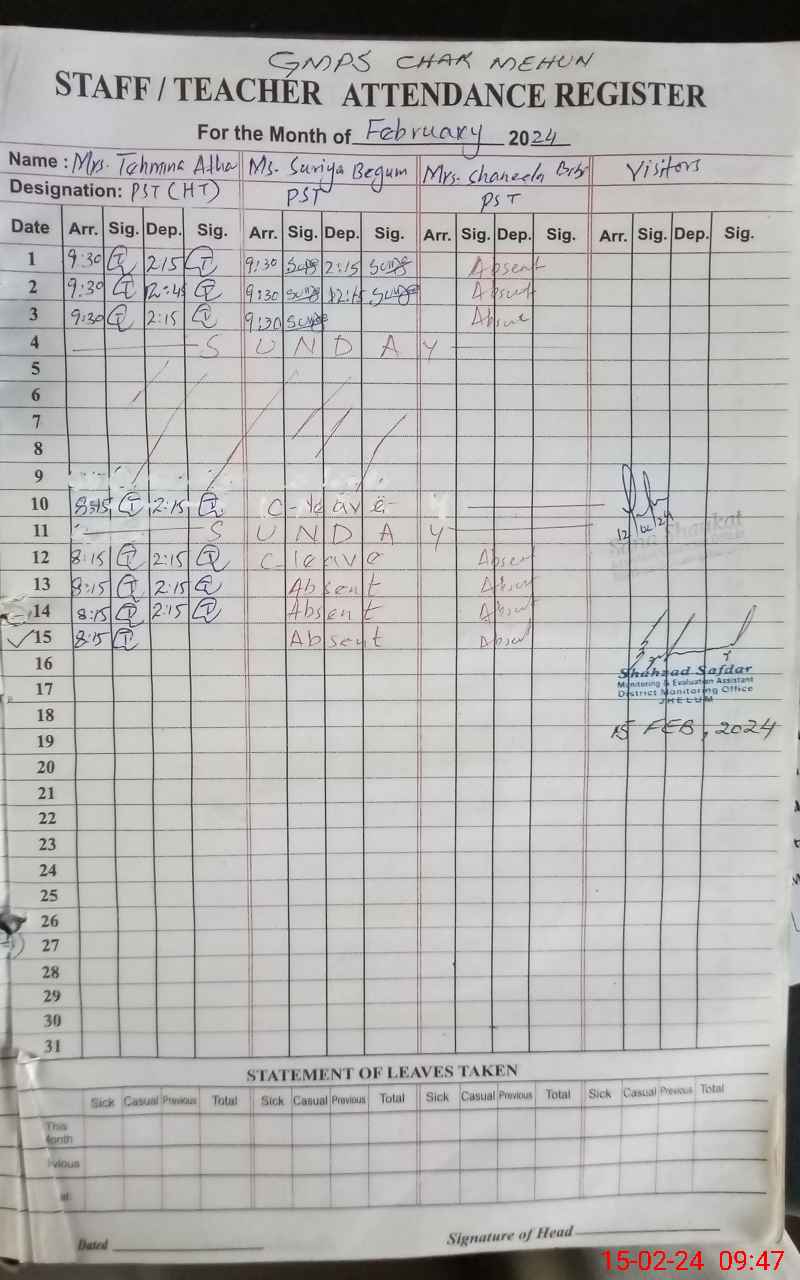 GMPS CHAK MEHUN
STAFF / TEACHER ATTENDANCE REGISTER
For the Month of February 2024
Name : Mrs. Tahmina Ms. Suriya Begum Mrs. Shaneela Bibi Visitors
Designation: PST (HT) PST PST
Date Arr. Sig. Dep. Sig. Arr. Sig. Dep. Sig. Arr. Sig. Dep. Sig. Arr. Sig. Dep. Sig.
1 9:30 T 2:15 T 9:30 2:15 Absent
2 9:30 T 12:45 T 9:30 Absent
3 9:30 T 2:15 T 9:30
4 S U N D A Y
5
6
7
8
9
10 8:15 T 2:15 T C-leave
11 S U N D A Y
12 8:15 T 2:15 T C leave Absent
13 8:15 T 2:15 T Absent Absent
14 8:15 T 2:15 T Absent Absent
15 8:15 T Absent Absent
16
17
18
19
20
21
22
23
24
25
26
27
28
29
30
31
Shaukat
Shahzad Safdar
Monitoring & Evaluation Assistant
District Monitoring Office
JHELUM
15 FEB, 2024
STATEMENT OF LEAVES TAKEN
Sick Casual Previous Total Sick Casual Previous Total Sick Casual Previous Total Sick Casual Previous Total
This
Month
Dated
Signature of Head
15-02-24 09:47